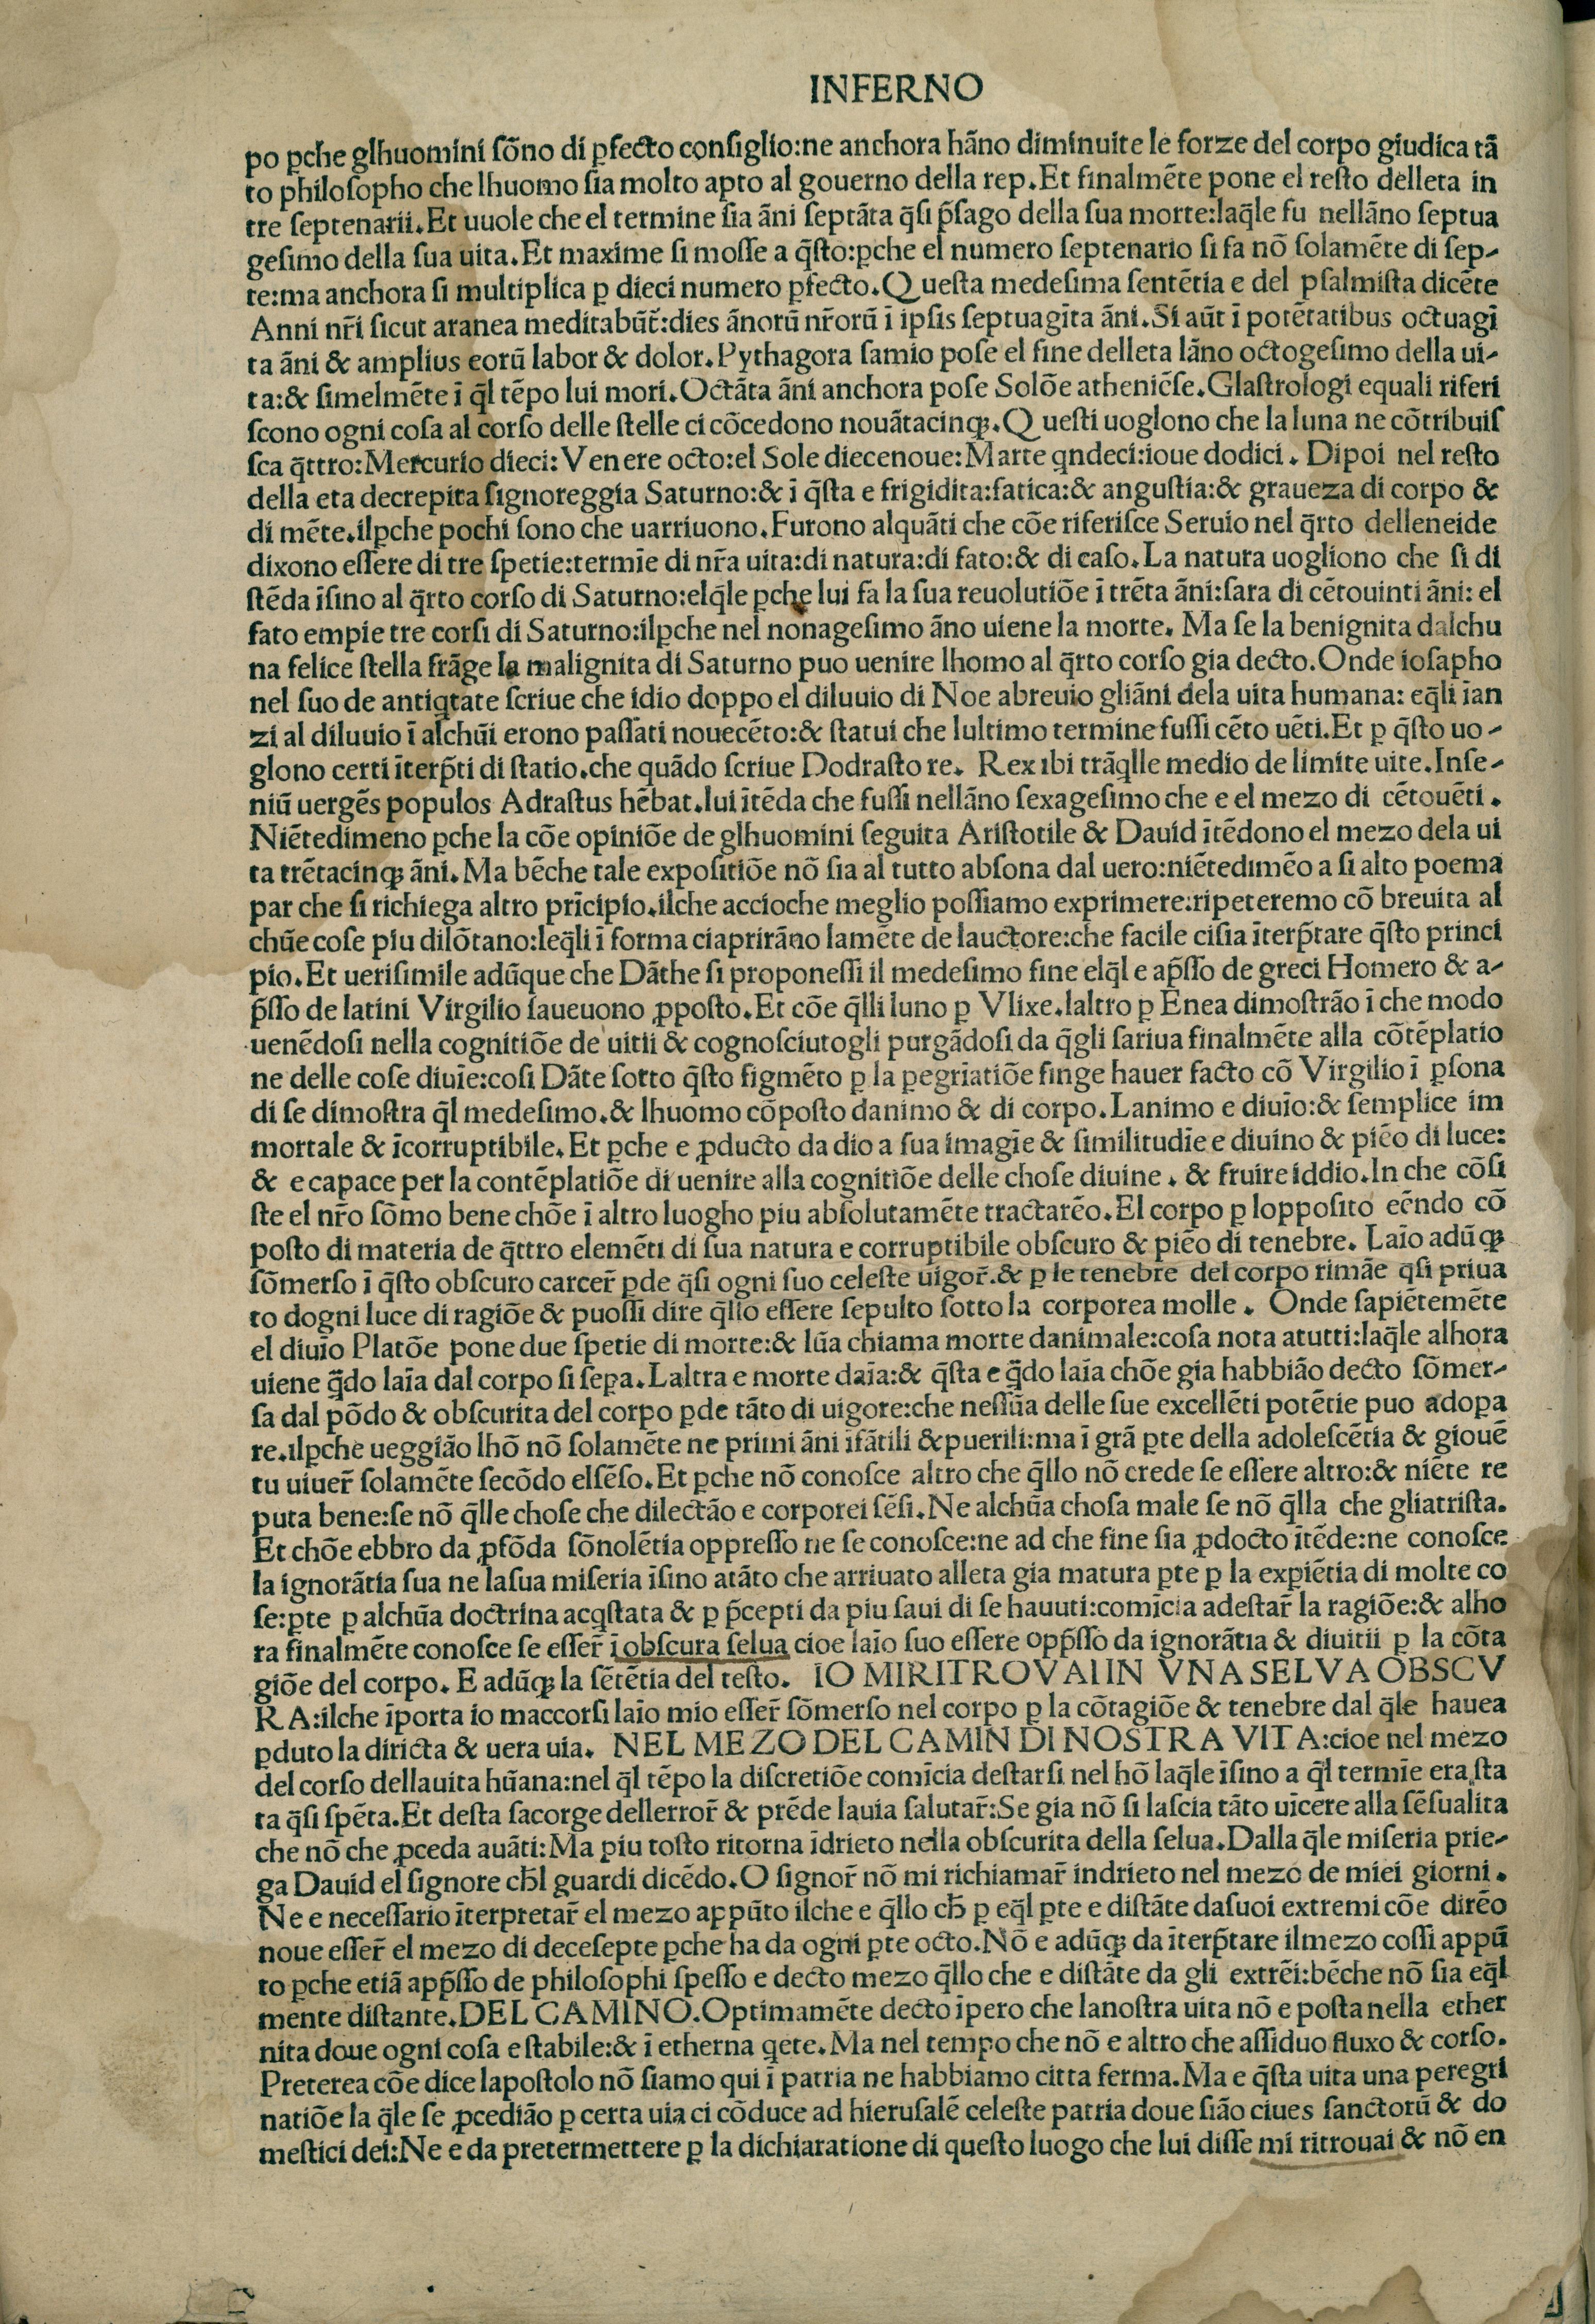 INFERNO
po ꝑche glhuomini sõno di ꝑfecto consiglio:ne anchora hãno diminuite le forze del corpo giudica tã
to philosopho che lhuomo sia molto apto al gouerno della rep.Et finalmẽte pone el resto delleta in
tre septenarii.Et uuole che el termine sia ãni septãta q̃si p̃sago della sua morte:laq̃le fu nellãno septua
gesimo della sua uita.Et maxime si mosse a q̃sto:ꝑche el numero septenario si fa nõ solamẽte di sep-
te:ma anchora si multiplica ꝑ dieci numero ꝑfecto.Questa medesima sentẽtia e del psalmista dicẽte
Anni nr̃i sicut aranea meditabũt̃:dies ãnorũ nr̃orũ ĩ ipsis septuagĩta ãni.Si aũt ĩ potẽtatibus octuagĩ
ta ãni & amplius eorũ labor & dolor.Pythagora samio pose el fine delleta lãno octogesimo della ui-
ta:& simelmẽte ĩ q̃l tẽpo lui mori.Octãta ãni anchora pose Solõe atheniẽse.Glastrologi equali riferi
scono ogni cosa al corso delle stelle ci cõcedono nouãtacinqꝫ.Questi uoglono che la luna ne cõtribuis
sca q̃ttro:Mercurio dieci:Venere octo:el Sole diecenoue:Marte qndeci:ioue dodici. Dipoi nel resto
della eta decrepita signoreggia Saturno:& ĩ q̃sta e frigidita:fatica:& angustia:& graueza di corpo &
di mẽte.ilꝑche pochi sono che uarriuono.Furono alquãti che cõe riferisce Seruio nel q̃rto delleneide
dixono essere di tre spetie:termĩe di nr̃a uita:di natura:di fato:& di caso.La natura uogliono che si di
stẽda ĩsino al q̃rto corso di Saturno:elq̃le ꝑche lui fa la sua reuolutiõe ĩ trẽta ãni:sara di cẽtouinti ãni: el
fato empie tre corsi di Saturno:ilꝑche nel nonagesimo ãno uiene la morte. Ma se la benignita dalchu
na felice stella frãge la malignita di Saturno puo uenire lhomo al q̃rto corso gia decto.Onde iosapho
nel suo de antiqtate scriue che idio doppo el diluuio di Noe abreuio gliãni dela uita humana: eq̃li ĩan
zi al diluuio ĩ alchũi erono passati nouecẽto:& statui che lultimo termine fussi cẽto uẽti.Et ꝑ q̃sto uo-
glono certi ĩterp̃ti di statio.che quãdo scriue Dodrasto re. Rex ibi trãqlle medio de limite uite.Inse-
niũ uergẽs populos Adrastus hẽbat.lui ĩtẽda che fussi nellãno sexagesimo che e el mezo di cẽtouẽti.
Niẽtedimeno ꝑche la cõe opiniõe de glhuomini seguita Aristotile & Dauid ĩtẽdono el mezo dela ui
ta trẽtacinqꝫ ãni. Ma bẽche tale expositiõe nõ sia al tutto absona dal uero:niẽtedimẽo a si alto poema
par che si richiega altro prĩcipio.ilche accioche meglio possiamo exprimere:ripeteremo cõ breuita al
chũe cose piu dilõtano:leq̃li ĩ forma ciaprirãno lamẽte de lauctore:che facile cisia ĩterp̃tare q̃sto princi
pio.Et uerisimile adũque che Dãthe si proponessi il medesimo fine elq̃l e ap̃sso de greci Homero & a-
p̃sso de latini Virgilio saueuono ꝓposto.Et cõe q̃lli luno ꝑ Vlixe.laltro ꝑ Enea dimostrão ĩ che modo
uenẽdosi nella cognitiõe de uitii & cognosciutogli purgãdosi da q̃gli sariua finalmẽte alla cõtẽplatio
ne delle cose diuĩe:cosi Dãte sotto q̃sto figmẽto ꝑ la ꝑegriatiõe finge hauer facto cõ Virgilio ĩ ꝑsona
di se dimostra q̃l medesimo.& lhuomo cõposto danimo & di corpo.Lanimo e diuĩo:& semplice im
mortale & ĩcorruptibile.Et ꝑche e ꝓducto da dio a sua imagĩe & similitudĩe e diuino & piẽo di luce:
& e capace per la contẽplatiõe di uenire alla cognitiõe delle chose diuine. & fruire iddio.In che cõsi
ste el nr̃o sõmo bene chõe ĩ altro luogho piu absolutamẽte tractarẽo.El corpo ꝑ lopposito eẽndo cõ
posto di materia de q̃ttro elemẽti di sua natura e corruptibile obscuro & piẽo di tenebre. Laĩo adũqꝫ
sõmerso ĩ q̃sto obscuro carcer̃ ꝑde q̃si ogni suo celeste uigor̃.& ꝑ le tenebre del corpo rimãe q̃si priua
to dogni luce di ragiõe & puossi dire q̃llo essere sepulto sotto la corporea molle. Onde sapiẽtemẽte
el diuĩo Platõe pone due spetie di morte:& lũa chiama morte danimale:cosa nota atutti:laq̃le alhora
uiene q̃do laĩa dal corpo si seꝑa.Laltra e morte daĩa:& q̃sta e q̃do laĩa chõe gia habbião decto sõmer-
sa dal põdo & obscurita del corpo ꝑde tãto di uigore:che nessũa delle sue excellẽti potẽtie puo adoꝑa
re.ilꝑche ueggião lhõ nõ solamẽte ne primi ãni ĩfãtili & puerili:ma ĩ grã ꝑte della adolescẽtia & giouẽ
tu uiuer̃ solamẽte secõdo elsẽso.Et ꝑche nõ conosce altro che q̃llo nõ crede se essere altro:& niẽte re
puta bene:se nõ q̃lle chose che dilectão e corporei sẽsi.Ne alchũa chosa male se nõ q̃lla che gliatrista.
Et chõe ebbro da ꝓfõda sõnolẽtia oppresso ne se conosce:ne ad che fine sia ꝓdocto ĩtẽde:ne conosce
la ignorãtia sua ne lasua miseria ĩsino atãto che arriuato alleta gia matura ꝑte ꝑ la exꝑiẽtia di molte co
se:ꝑte ꝑ alchũa doctrina acqstata & ꝑ p̃cepti da piu saui di se hauuti:comĩcia adestar̃ la ragiõe:& alho
ra finalmẽte conosce se esser̃ ĩ obscura selua cioe laĩo suo essere opp̃sso da ignorãtia & diuitii ꝑ la cõta
giõe del corpo. E adũqꝫ la sẽtẽtia del testo. IO MI RITROVAI IN VNA SELVA OBSCV
RA:ilche ĩporta io maccorsi laĩo mio esser̃ sõmerso nel corpo ꝑ la cõtagiõe & tenebre dal q̃le hauea
ꝑduto la diricta & uera uia. NEL MEZO DEL CAMIN DI NOSTRA VITA:cioe nel mezo
del corso dellauita hũana:nel q̃l tẽpo la discretiõe comĩcia destarsi nel hõ laq̃le ĩsino a q̃l termĩe era sta
ta q̃si spẽta.Et desta sacorge dellerror̃ & prẽde lauia salutar̃:Se gia nõ si lascia tãto uĩcere alla sẽsualita
che nõ che ꝓceda auãti:Ma piu tosto ritorna ĩdrieto nella obscurita della selua.Dalla q̃le miseria prie-
ga Dauid el signore ch̃l guardi dicẽdo.O signor̃ nõ mi richiamar̃ indrieto nel mezo de miei giorni.
Ne e necessario ĩterpretar̃ el mezo appũto ilche e q̃llo ch̃ ꝑ eq̃l ꝑte e distãte dasuoi extremi cõe dirẽo
noue esser̃ el mezo di decesepte ꝑche ha da ogni ꝑte octo.Nõ e adũqꝫ da ĩterp̃tare ilmezo cossi appũ
to ꝑche etiã app̃sso de philosophi spesso e decto mezo q̃llo che e distãte da gli extrẽi:bẽche nõ sia eq̃l
mente distante.DEL CAMINO.Optimamẽte decto ĩpero che lanostra uita nõ e posta nella ether
nita doue ogni cosa e stabile:& ĩ etherna qete. Ma nel tempo che nõ e altro che assiduo fluxo & corso.
Preterea cõe dice lapostolo nõ siamo qui ĩ patria ne habbiamo citta ferma.Ma e q̃sta uita una peregri
natiõe la q̃le se ꝓcedião ꝑ certa uia ci cõduce ad hierusalẽ celeste patria doue sião ciues sanctorũ & do
mestici dei:Ne e da pretermettere ꝑ la dichiaratione di questo luogo che lui disse mi ritrouai & nõ en